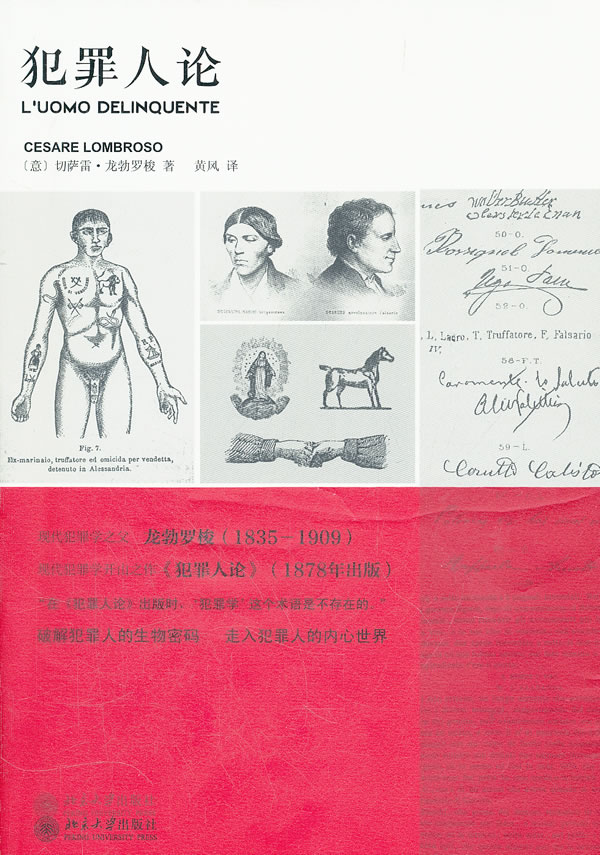 犯罪人论
L'UOMO DELINQUENTE
CESARE LOMBROSO
〔意〕切萨雷·龙勃罗梭 著 黄风 译
Fig. 7.
Ex-marinaio, truffatore ed omicida per vendetta,
detenuto in Alessandria.
50-O.
51-O.
52-O.
L, Ladro, T, Truffatore, F, Falsario
56-F.T.
59-L.
现代犯罪学之父 龙勃罗梭(1835-1909)
《犯罪人论》(1878年出版)
“在《犯罪人论》出版时,“犯罪学”这个术语是不存在的。”
破解犯罪人的生物密码 走入犯罪人的内心世界
北京大学出版社
PEKING UNIVERSITY PRESS